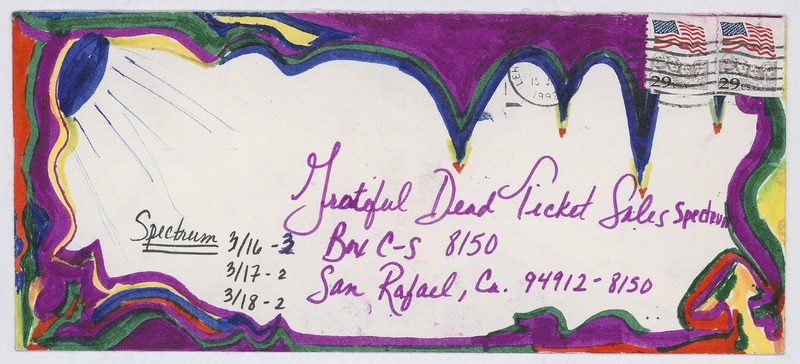 LEH
1993
29 USA
29 USA
Grateful Dead Ticket Sales Spectrum
Box C-S 8150
San Rafael, Ca. 94912-8150
Spectrum 3/16 - 3
3/17 - 2
3/18 - 2